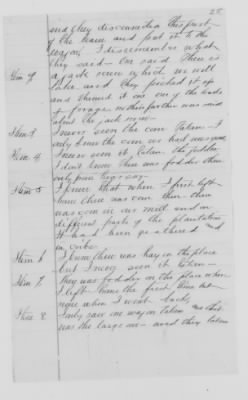 28
and they discounted this part
of the team and put it to the
wagon. I disremember what
they said - One said There is
a jack screw which we will
take and they picked it up
and throwed it on one of the loads
of forage nothing farther was said
about the jack screw
Item 3 I never seen the corn taken - I
only know the corn we had was gone
Item 4 I never seen it taken. the fodder
I don't know there was fodder then
only from hearsay
Item 5 I know that when I first left
home there was corn then there
was corn in our mill and in
different parts of the plantation
It had been gathered and
in cribs
Item 6 I know there was hay on the place
but I never seen it taken -
Item 7 There was fodder on the place when
I left home the first time but
none when I went back,
Item 8 I only saw one wagon taken and this
was the large one - and they taken